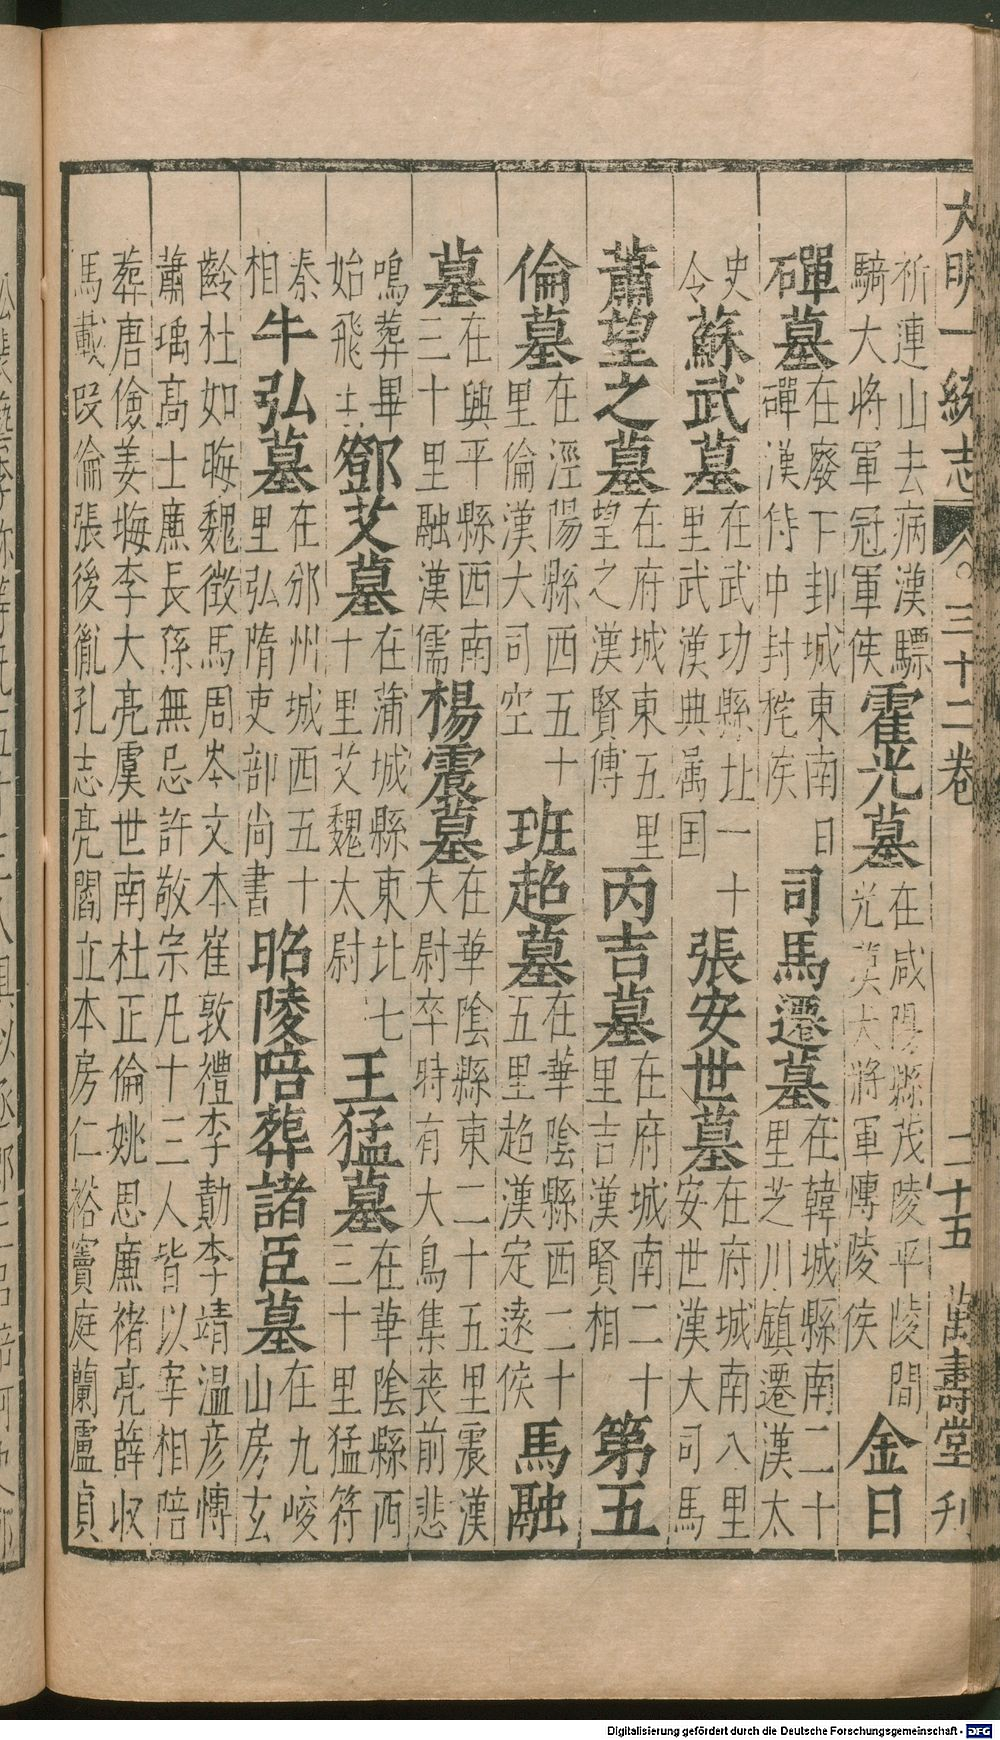 大明一統志 八 三十二卷 二十五 萬壽堂刋
祈連山去病漢驃
騎大將軍冠軍侯
霍光墓
在咸陽縣茂陵平陵間
光漢大將軍慱陵侯
金日
磾墓
在廢下邽城東南日
磾漢侍中封秺侯
司馬遷墓
在韓城縣南二十
里芝川鎮遷漢太
史
令
蘇武墓
在武功縣北一十
里武漢典属国
張安世墓
在府城南八里
安世漢大司馬
蕭望之墓
在府城東五里
望之漢賢傅
丙吉墓
在府城南二十
里吉漢賢相
第五
倫墓
在涇陽縣西五十
里倫漢大司空
班超墓
在華隂縣西二十
五里超漢定遠侯
馬融
墓
在興平縣西南
三十里融漢儒
楊震墓
在華隂縣東二十五里震漢
太尉卒時有大鳥集喪前悲
鳴葬畢
始飛去
鄧艾墓
在蒲城縣東北七
十里艾魏太尉
王猛墓
在華隂縣西
三十里猛符
秦
相
牛弘墓
在邠州城西五十
里弘隋吏部尚書
昭陵陪葬諸臣墓
在九嵕
山房玄
齡杜如晦魏徴馬周岑文本崔敦禮李勣李靖温彦愽
蕭瑀髙士廉長孫無忌許敬宗凢十三人皆以宰相陪
葬唐儉姜㙁李大亮虞世南杜正倫姚思廉褚亮薛收
馬載叚倫張後胤孔志亮閻立本房仁裕竇庭蘭盧貞
Digitalisierung gefördert durch die Deutsche Forschungsgemeinschaft - DFG